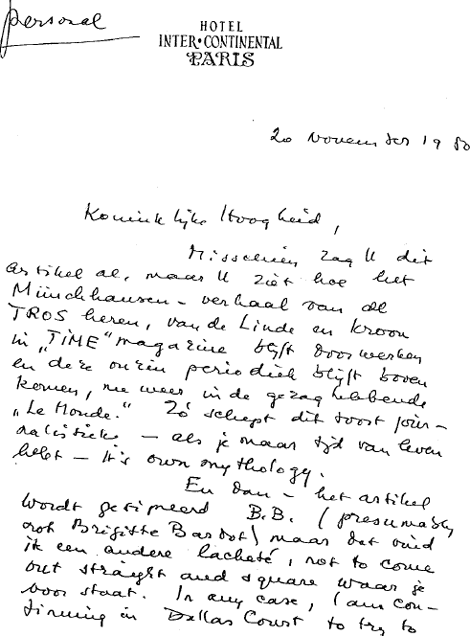 personal
HOTEL
INTER•CONTINENTAL
PARIS
20 November 1980
Koninklijke Hoogheid,
Misschien zag U dit
artikel al, maar U ziet hoe het
Münchhausen - verhaal van de
TROS heren, van de Linde en Kroon
in „TIME" magazine blijft doorwerken
en deze onzin periodiek blijft boven
komen, nu weer in de gezaghebbende
„Le Monde." Zó schept dit soort jour-
nalistiek - als je maar tijd van leven
hebt - it's own mythology.
En dan - het artikel
wordt getipeerd B.B. (presumably
not Brigitte Bardot) maar dat vind
ik een andere lacheté, not to come
out straight and square waar je
voor staat. In any case, I am con-
tinuing in Dallas Court to try to